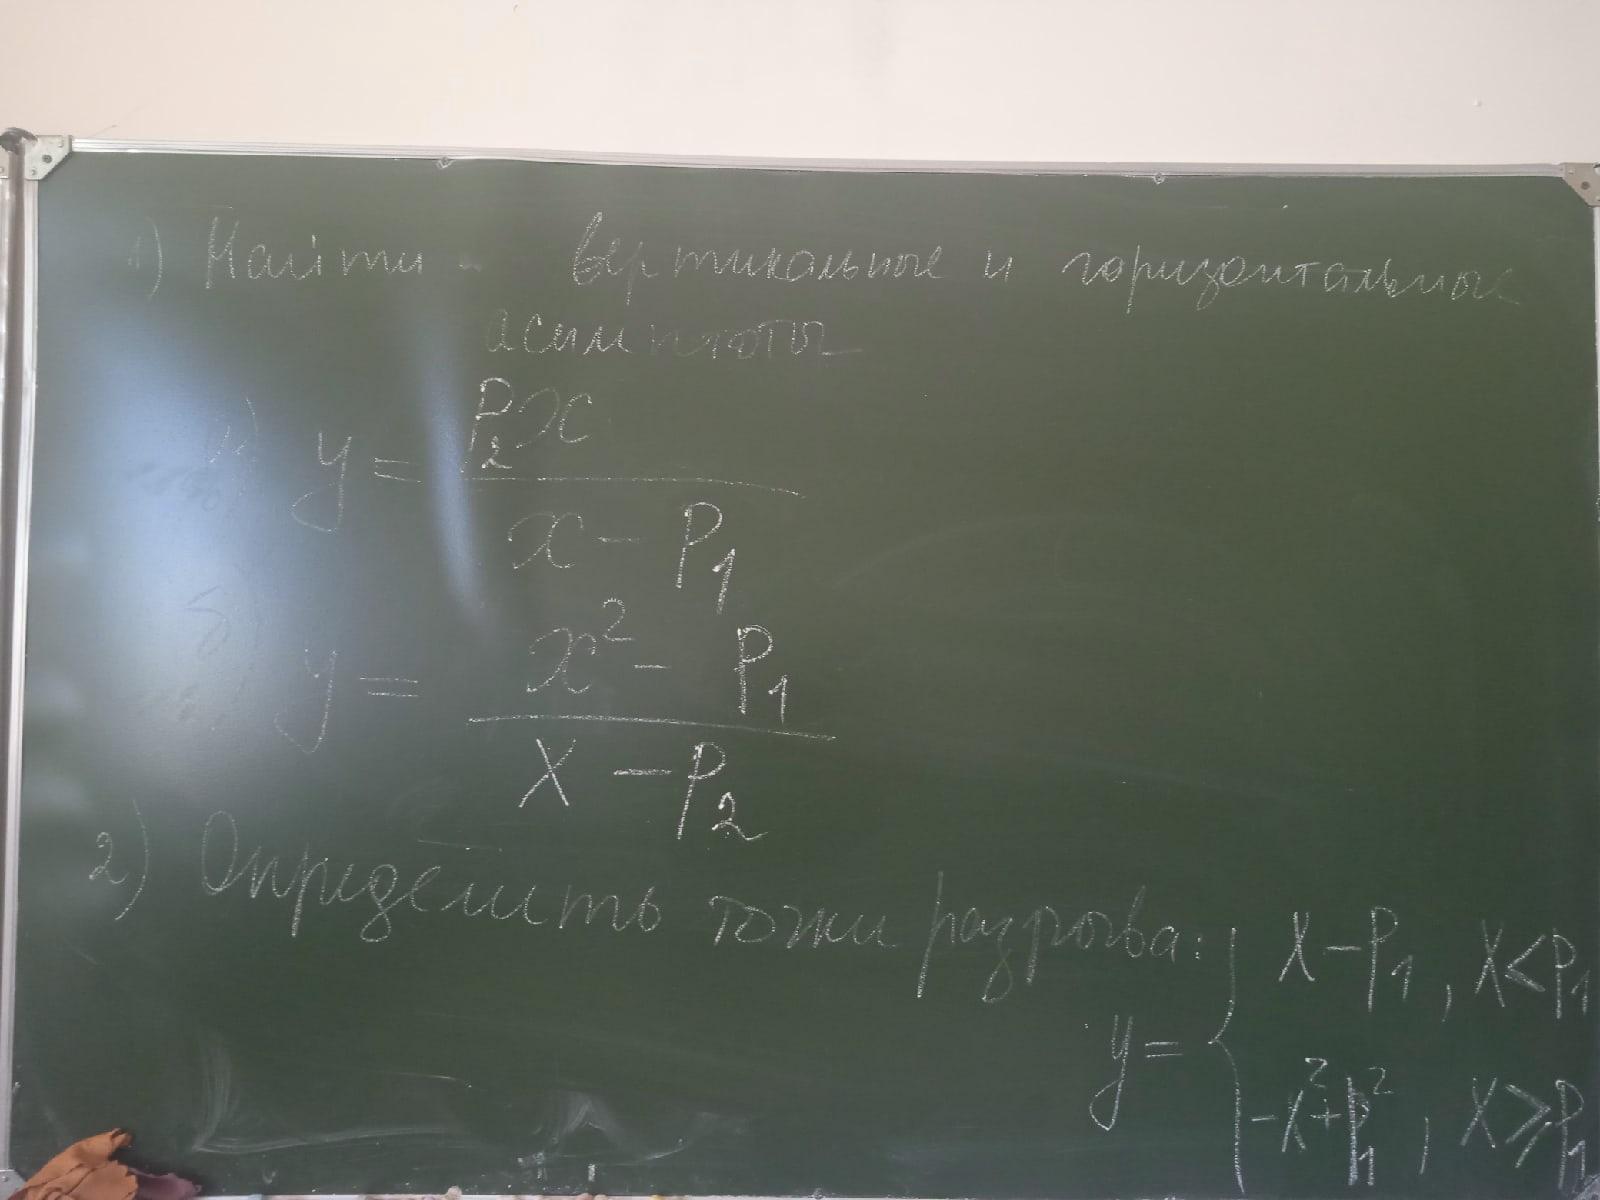 1) Найти вертикальные и горизонтальные
асимптоты
а) y = P₂x / (x - P₁)
б) y = (x² - P₁) / (x - P₂)
2) Определить точки разрыва:
y = { x - P₁, x < P₁
-x² + P₁², x ⩾ P₁